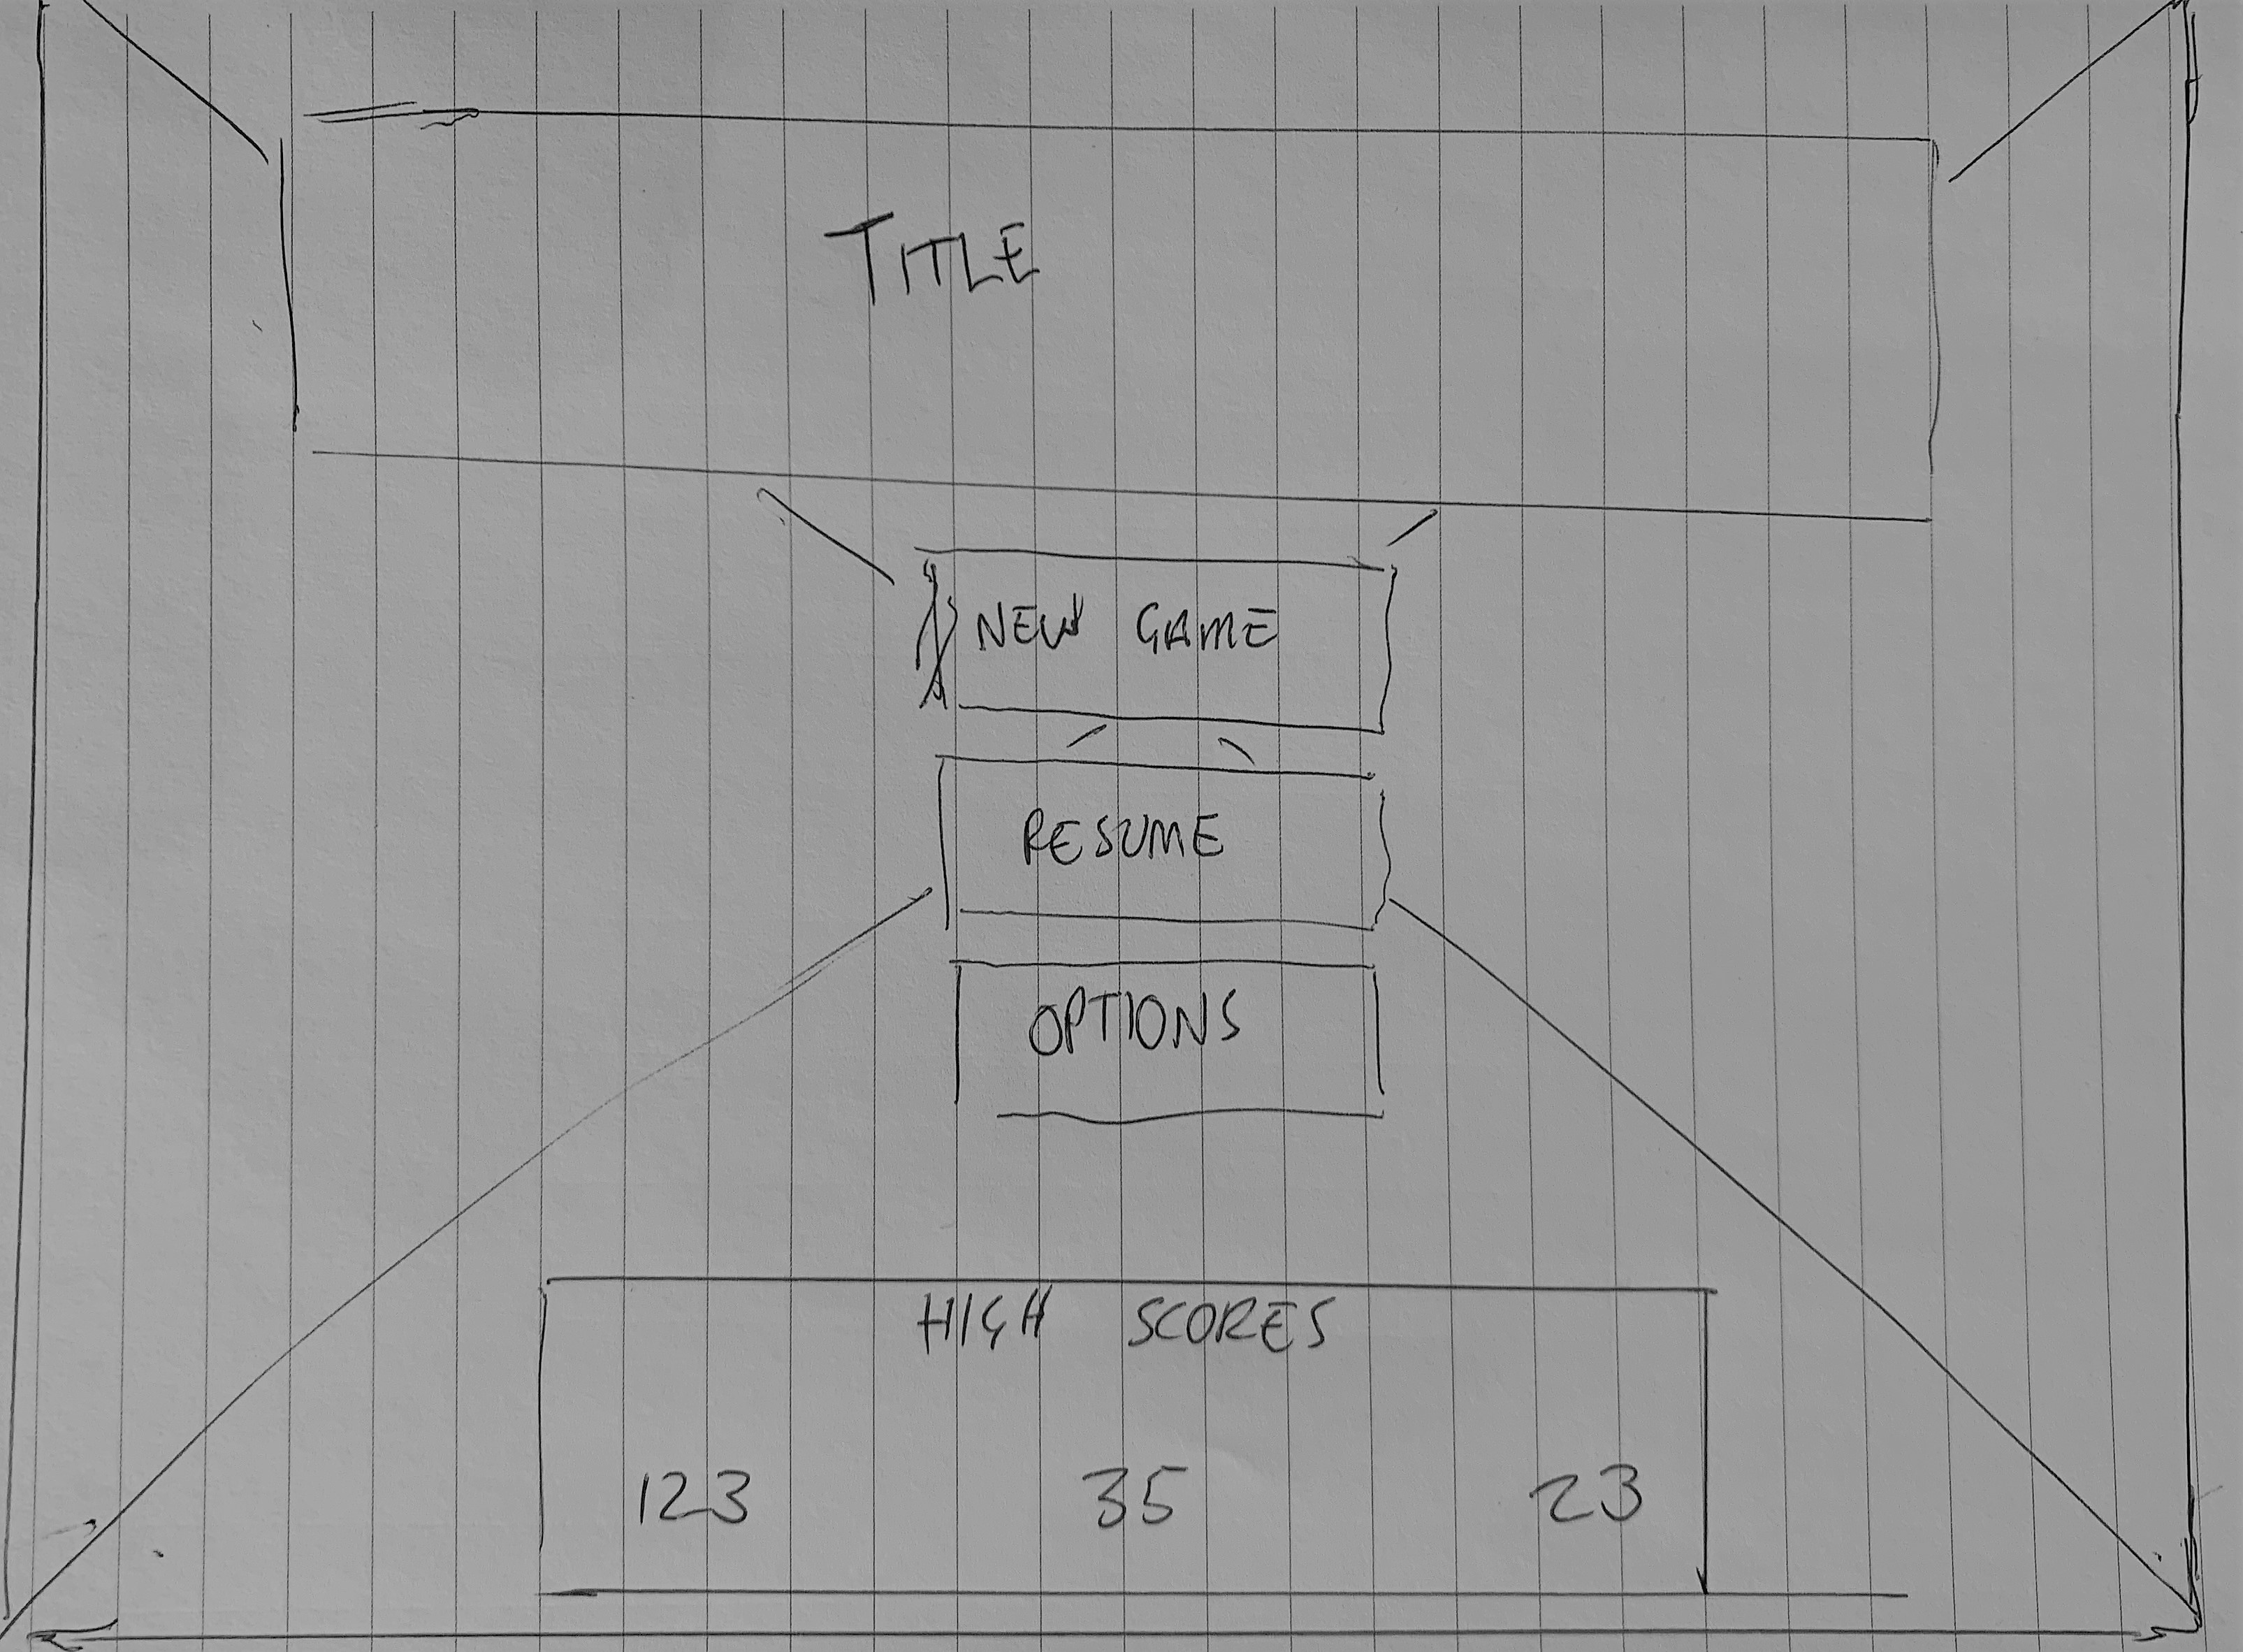 TITLE
NEW GAME
RESUME
OPTIONS
HIGH SCORES
123 35 23